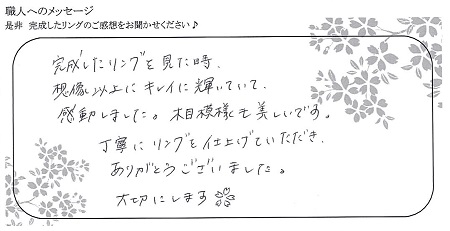 職人へのメッセージ
是非 完成したリングのご感想をお聞かせください♪
完成したリングを見た時、
想像以上にキレイに輝いていて、
感動しました。木目模様も美しいです。
丁寧にリングを仕上げていただき、
ありがとうございました。
大切にします